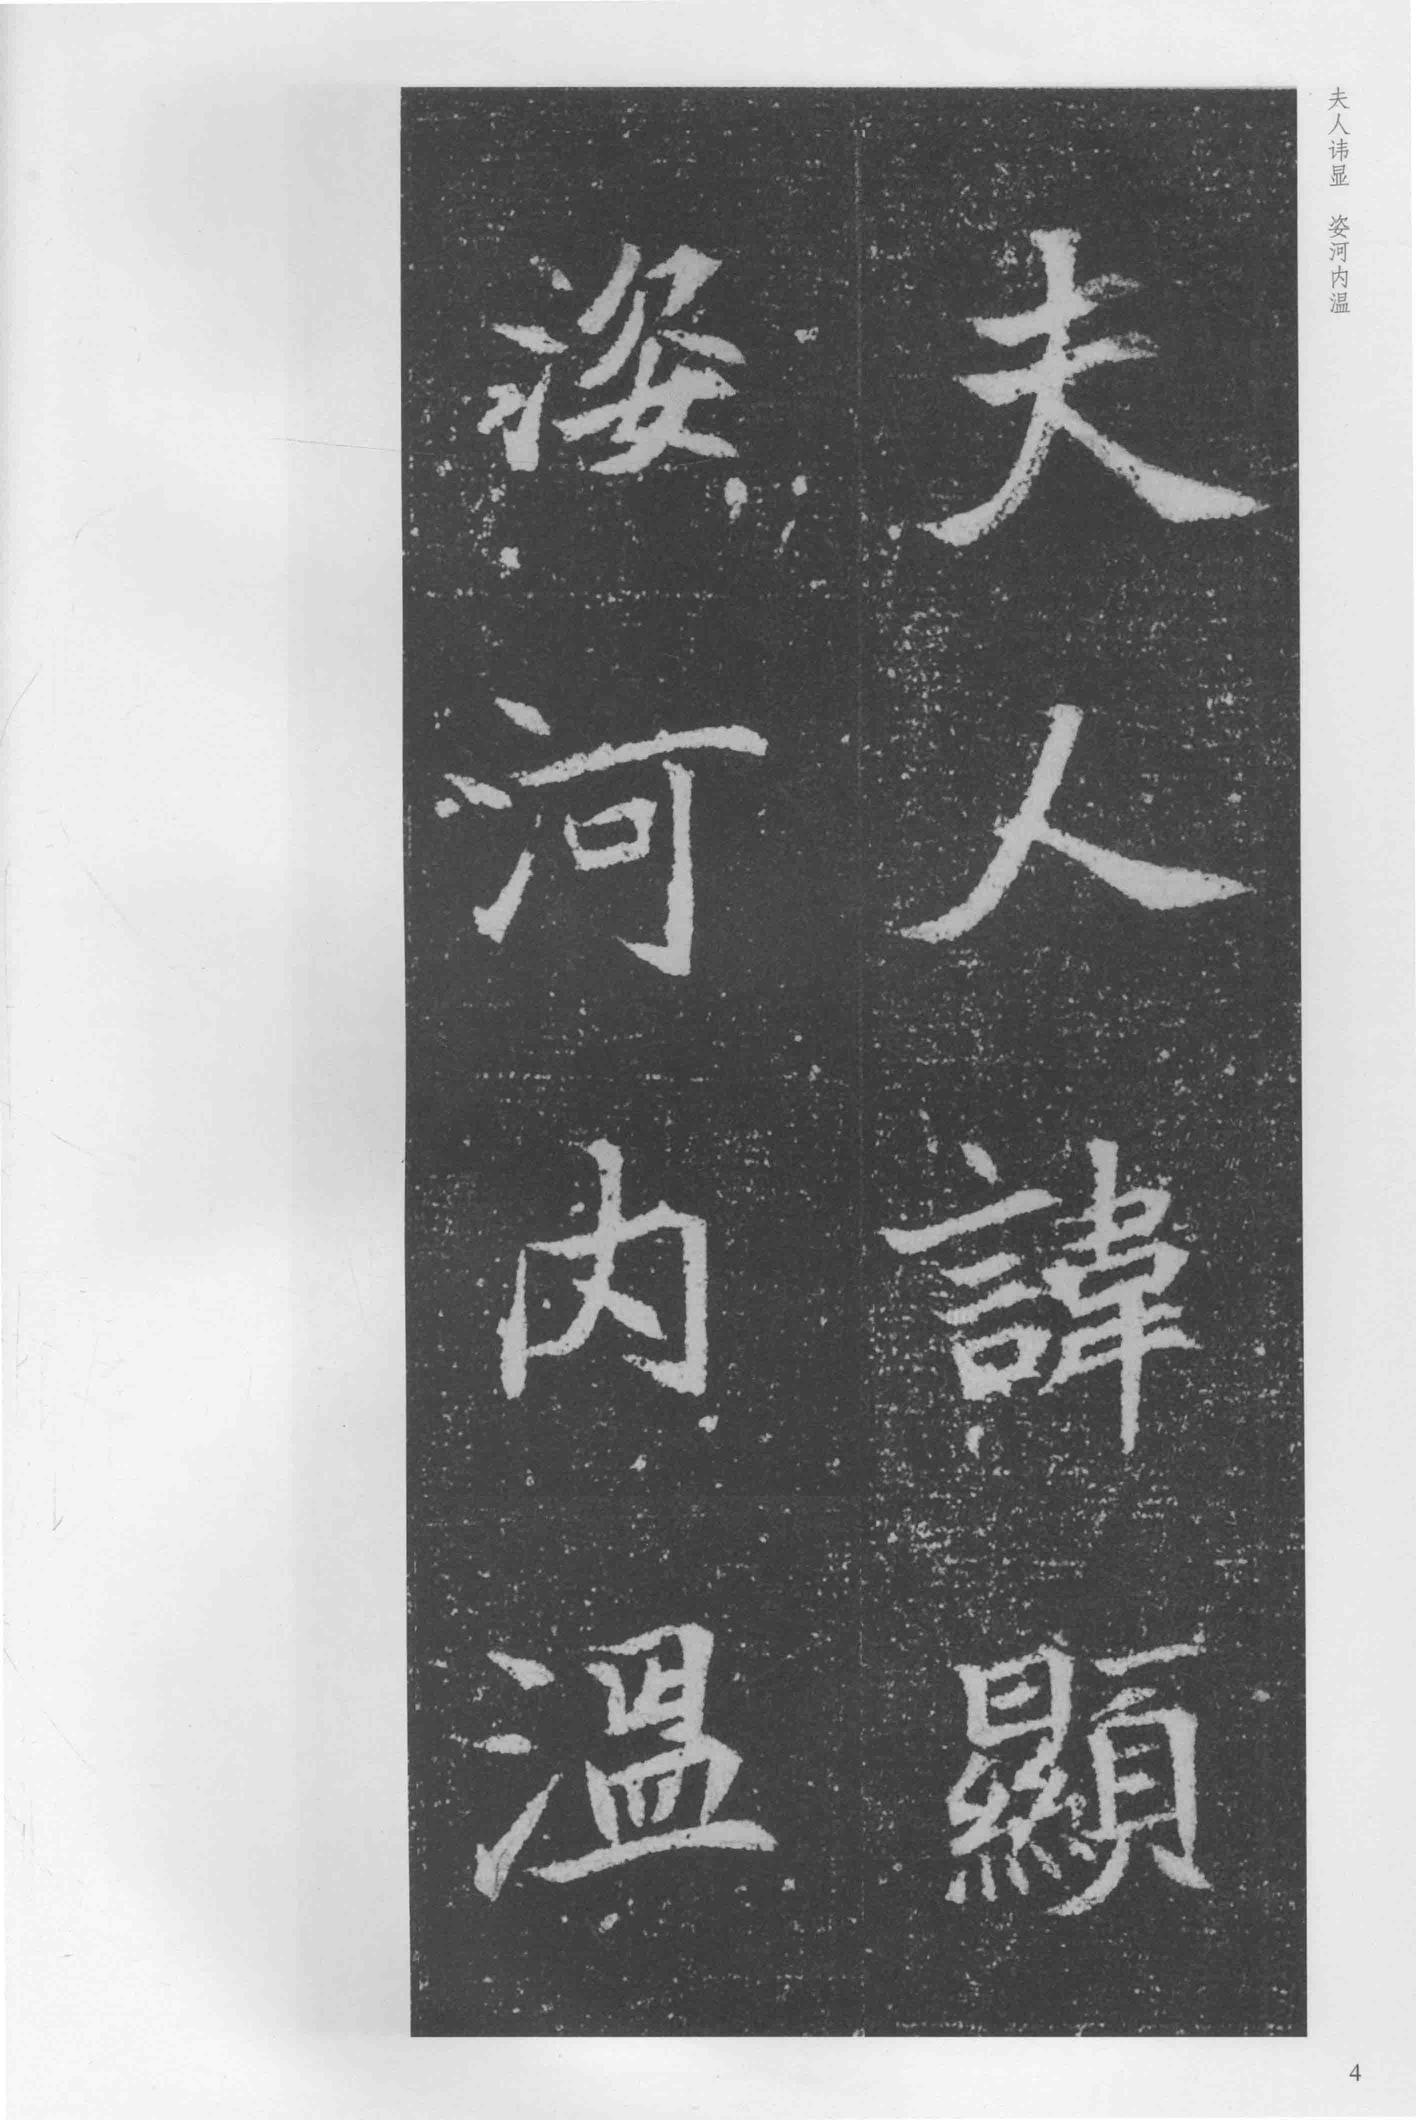 夫人讳显 姿河内温
夫人諱顯
姿河内温
4